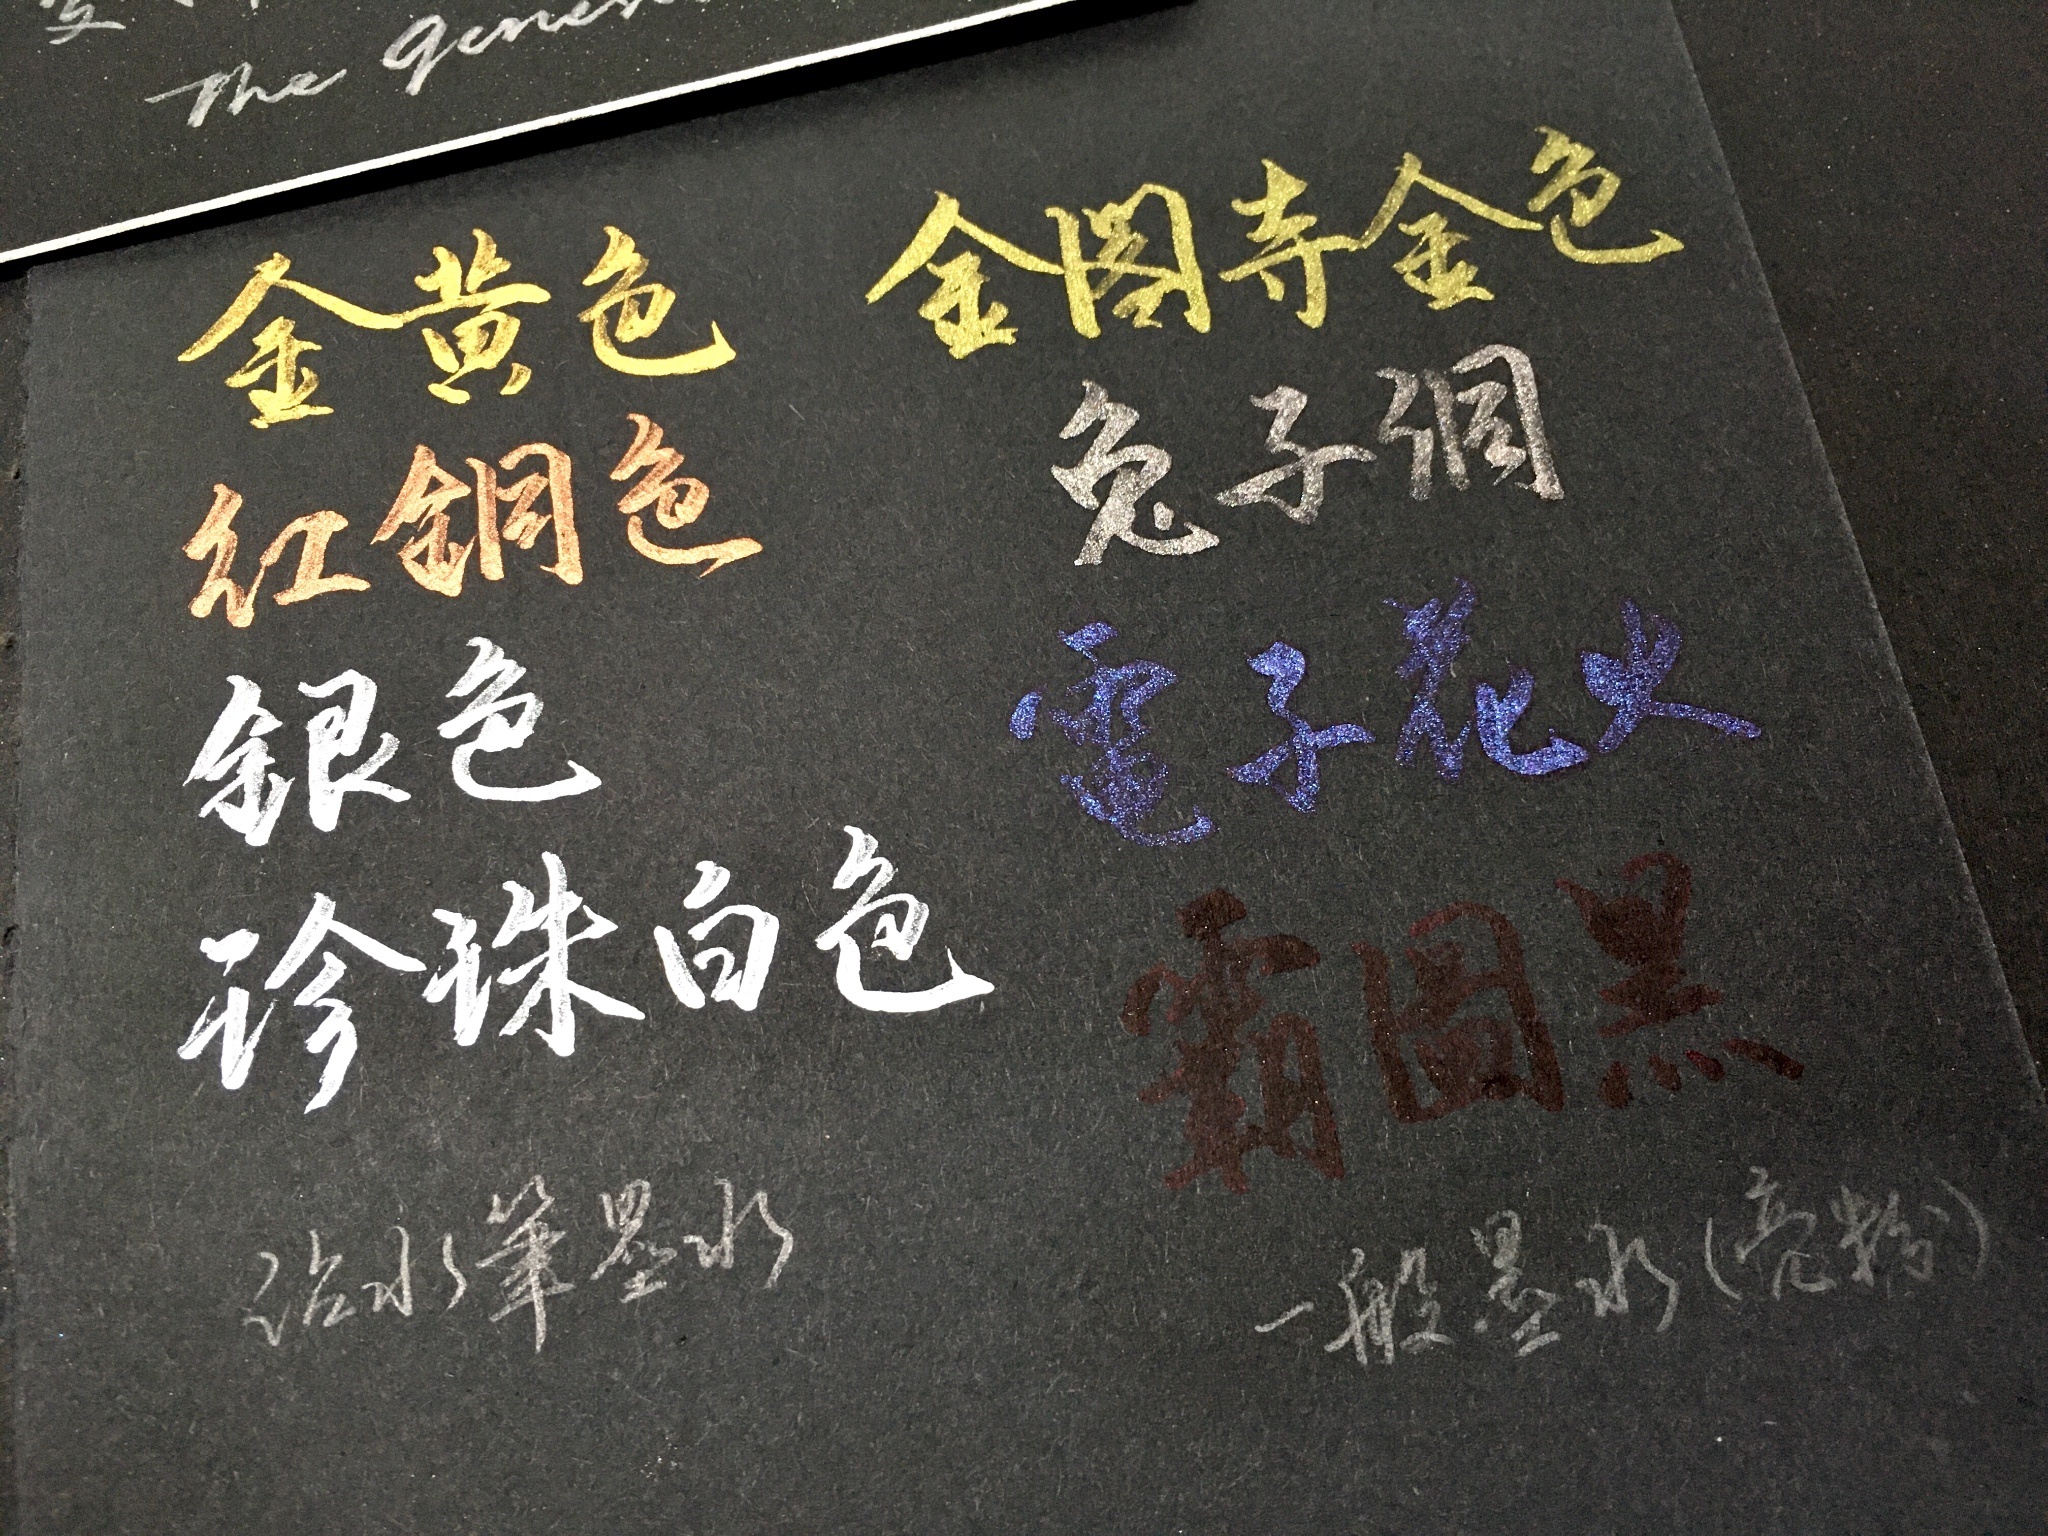 The
金黃色
紅銅色
銀色
珍珠白色
沾水筆墨水
金閣寺金色
兔子洞
電子花火
霸圖黑
一般墨水(亮粉)